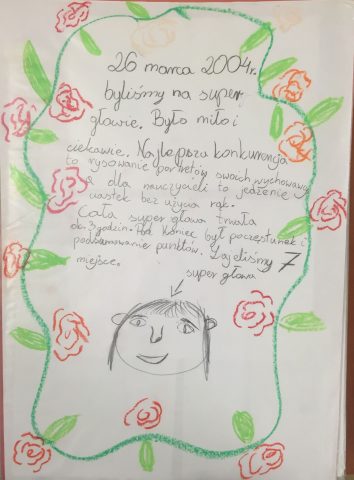 26 marca 2004r.
byliśmy na super
głowie. Było miło i
ciekawie. Najlepsza konkurencja
to rysowanie portretów swoich wychowawców
a dla nauczycieli to jedzenie
ciastek bez użycia rąk.
Cała super głowa trwała
ok. 3 godzin. Pod koniec był poczęstunek i
podsumowanie punktów. Zajeliśmy 7
miejsce.
super głowa